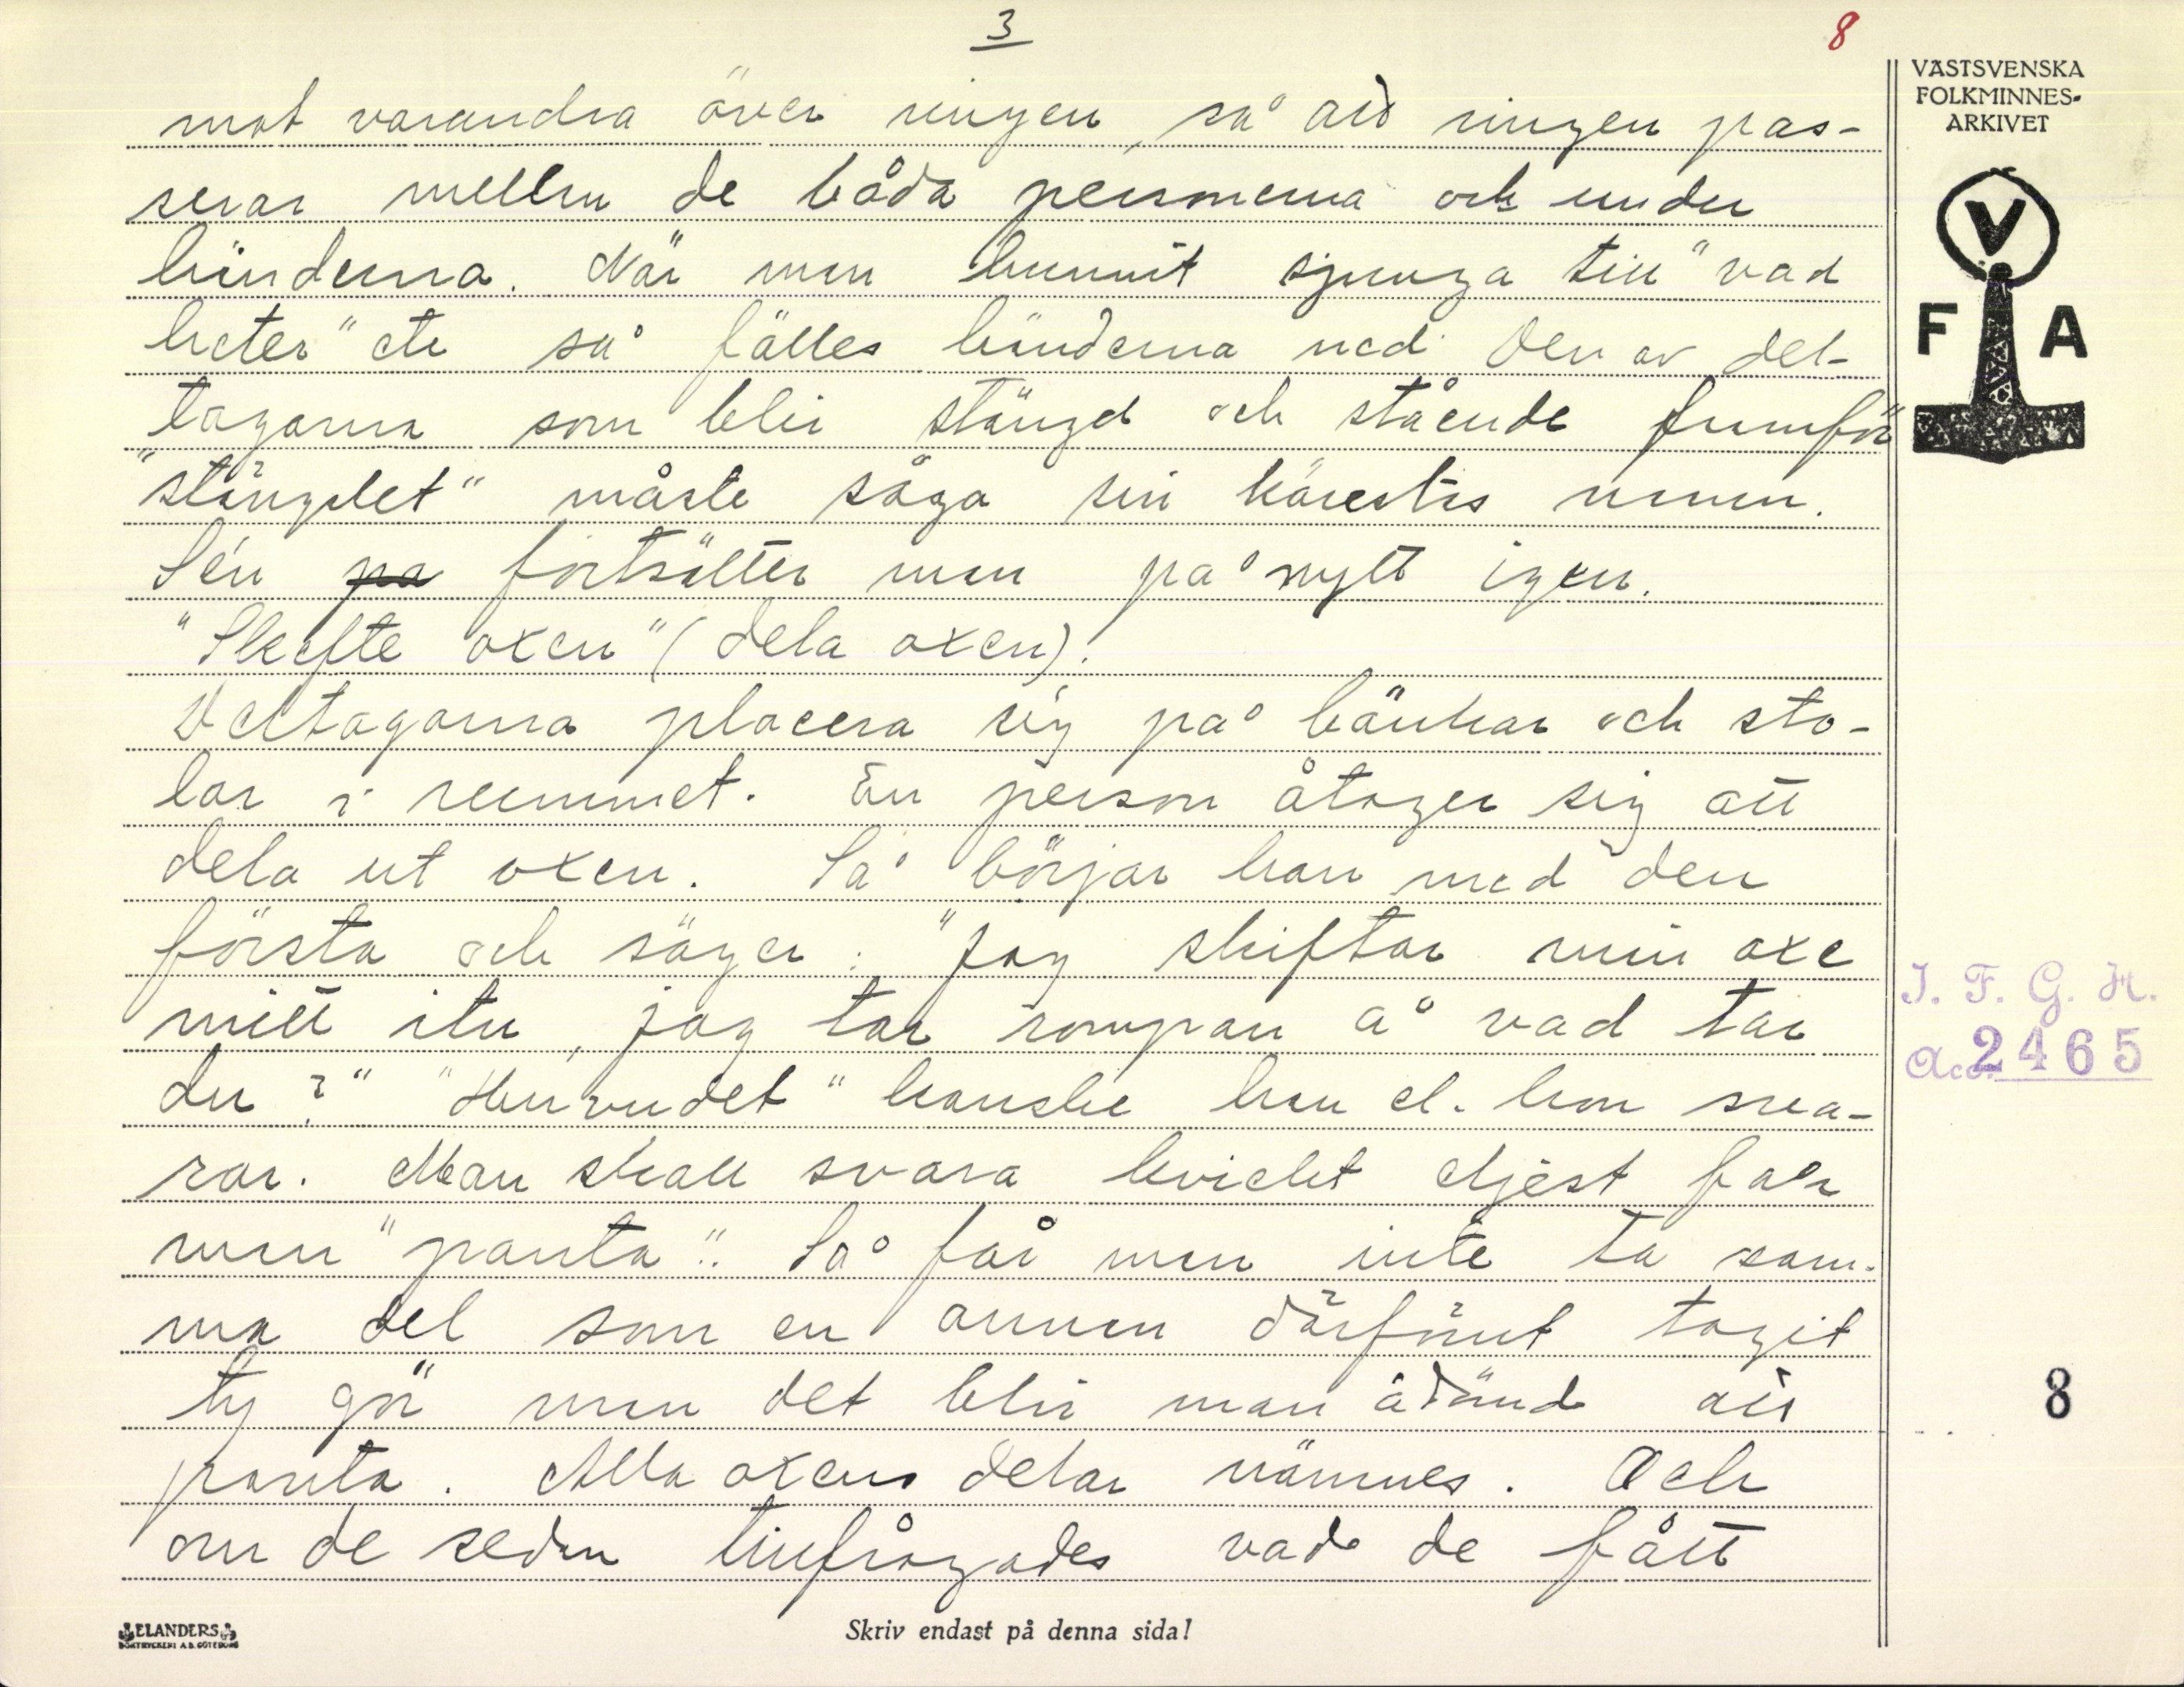 3
8
VÄSTSVENSKA
FOLKMINNES-
ARKIVET
V
F A
mot varandra över ringen, så att ringen pas-
serar mellan de båda personerna och under
händerna. När man hunnit sjunga till "vad
heter" etc så fälles händerna ned. Den av del-
tagarna som blir stängd och stående framför
"stängslet" måste säga sin kärestas namn.
Sén pa fortsätter man på nytt igen.
"Skefte oxen" (dela oxen).
Deltagarna placera sig på bänkar och sto-
lar i rummet. En person åtager sig att
dela ut oxen. Så börjar han med den
första och säger: "Jag skiftar min oxe
mitt itu, jag tar rompan å vad tar
du?" "Huvudet" kanske han el. hon sva-
rar. Man skall svara kvickt eljest får
man "panta". Så får man inte ta sam-
ma del som en annan därförut tagit
ty gör man det blir man ådömd att
panta. Alla oxens delar nämnes. Och
om de sedan tillfrågades vad de fått
I. F. G. H.
Acc. 2465
8
ELANDERS
BOKTRYCKERI A.B. GÖTEBORG
Skriv endast på denna sida!